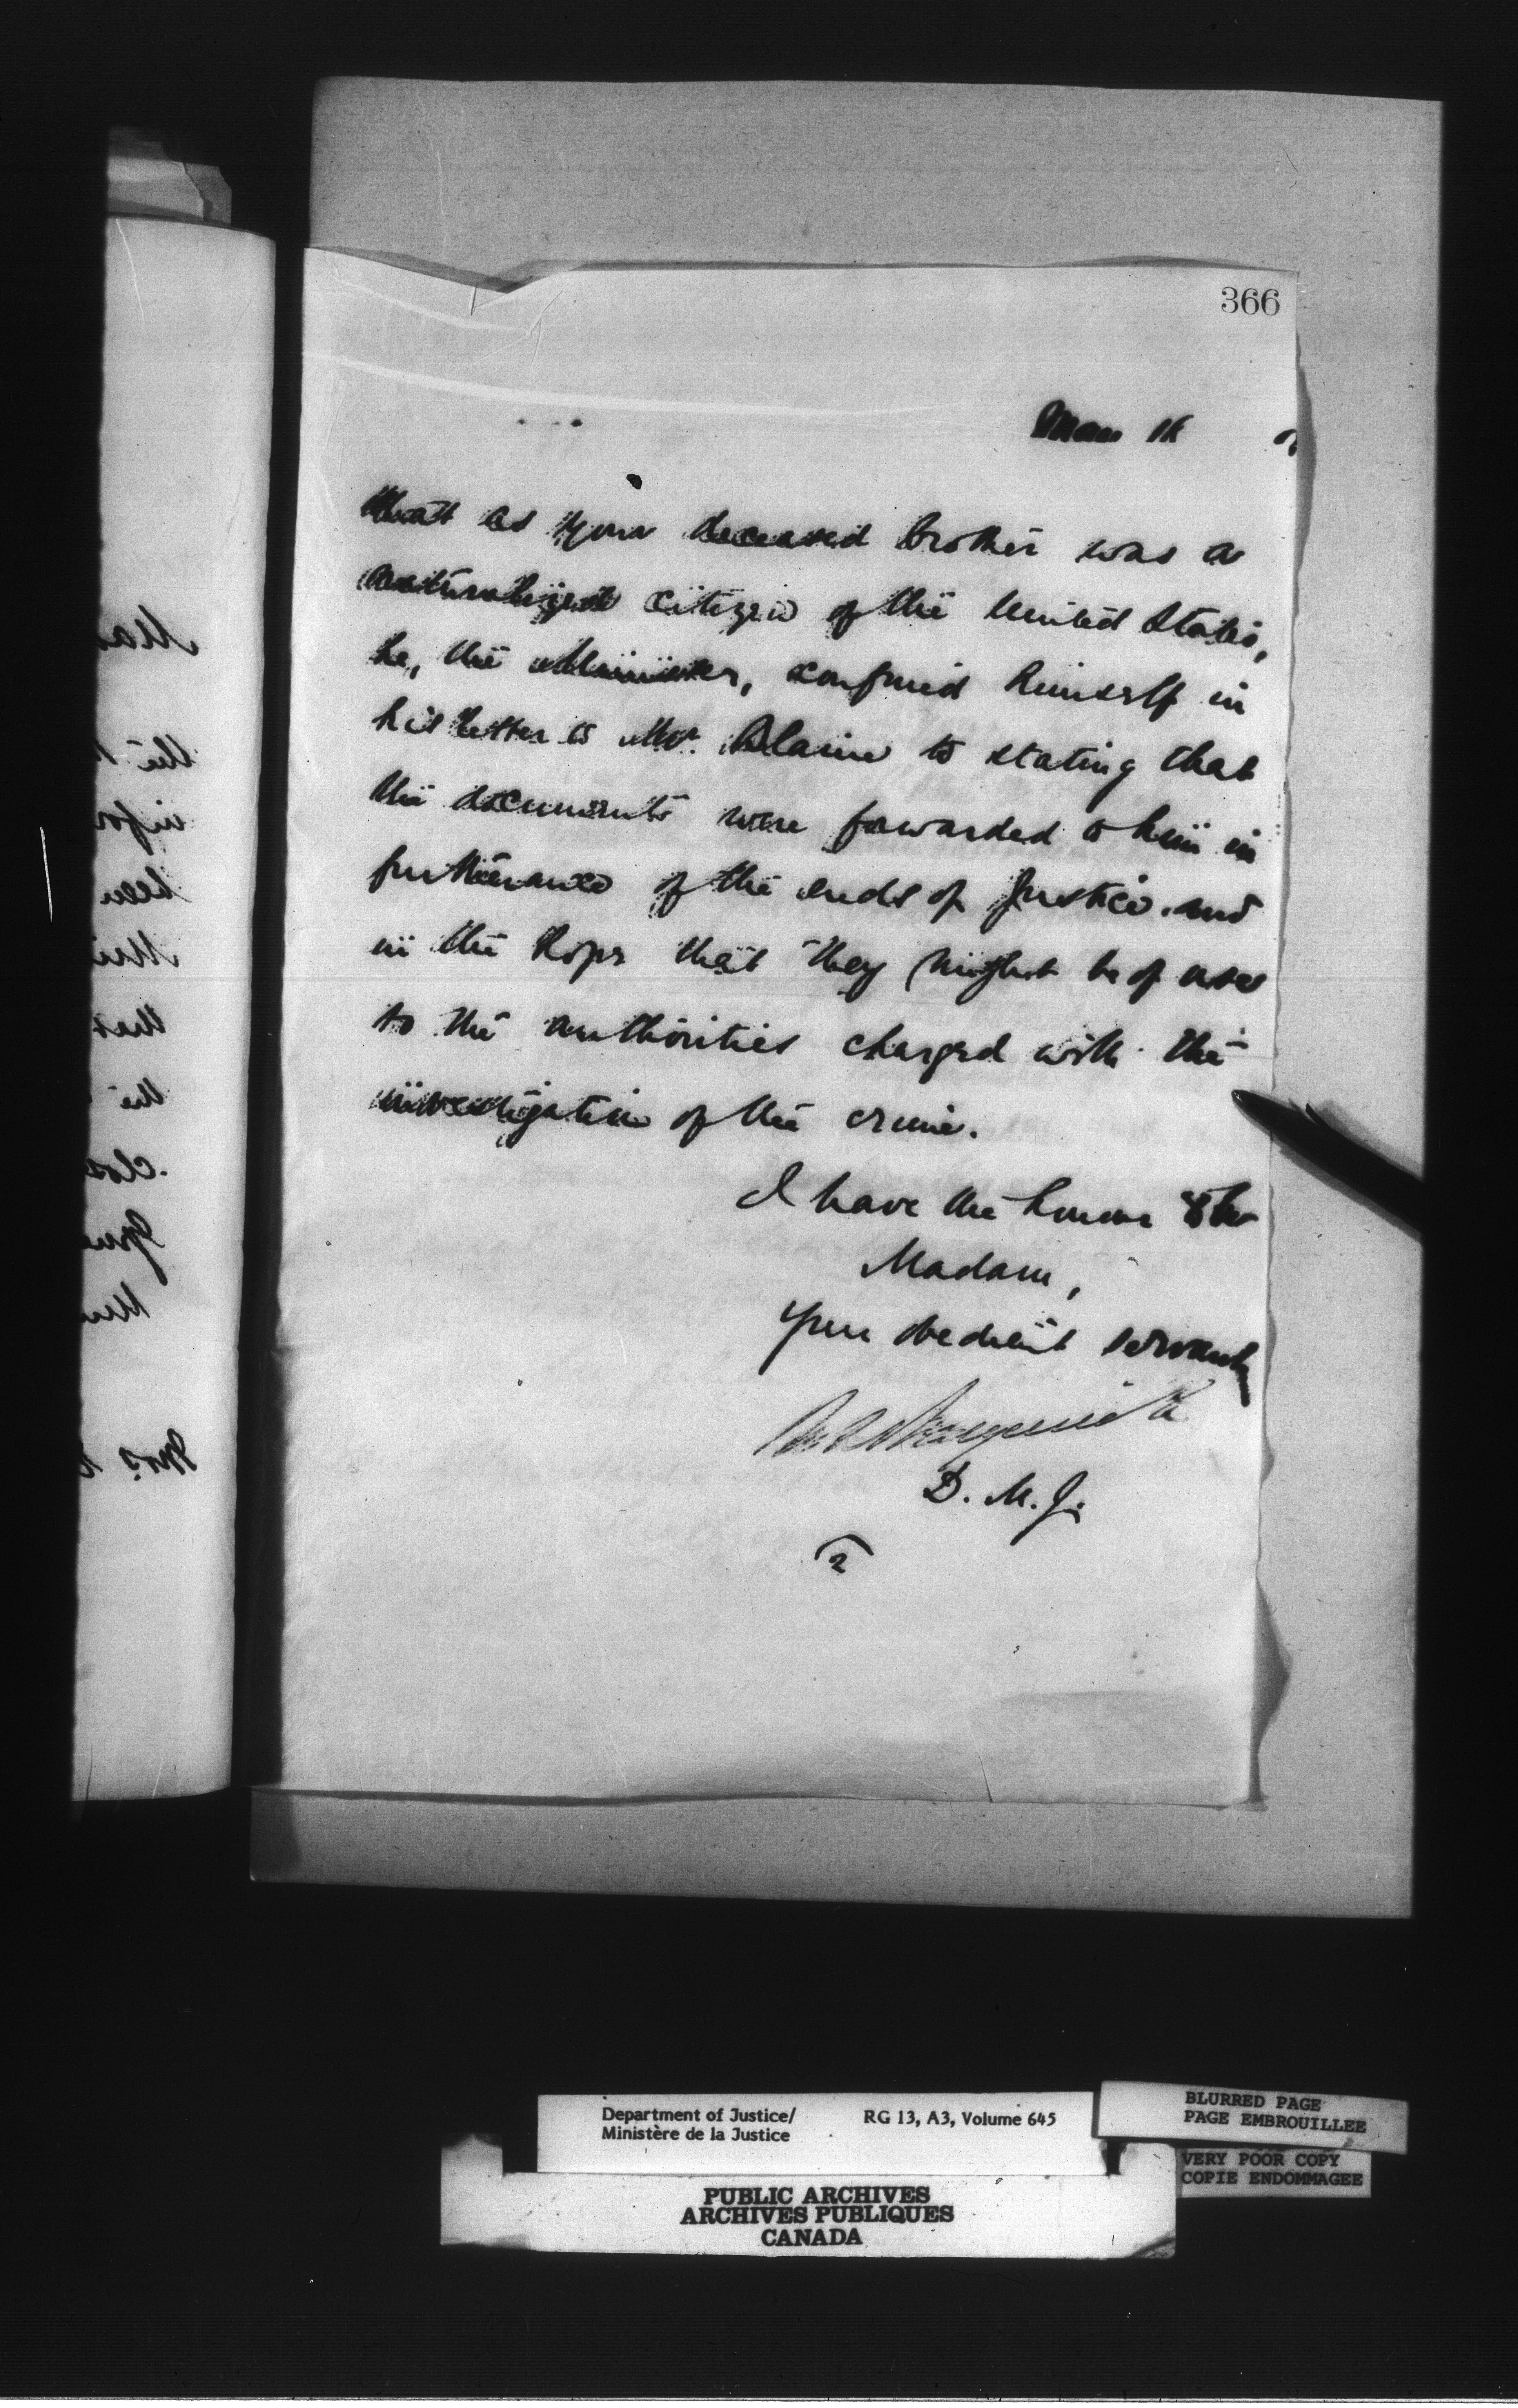 366
that as your deceased brother was a
naturalized citizen of the United States,
he, the Minister, confined himself in
his letter to Mr. Blaine to stating that
the documents were forwarded to him in
furtherance of the ends of Justice and
in the hope that they might be of use
to the authorities charged with the
investigation of the crime.
I have the honour to be
Madam,
Your obedient servant,
D. M. J.
2
Department of Justice/
Ministère de la Justice
RG 13, A3, Volume 645
BLURRED PAGE
PAGE EMBROUILLEE
VERY POOR COPY
COPIE ENDOMMAGEE
PUBLIC ARCHIVES
ARCHIVES PUBLIQUES
CANADA